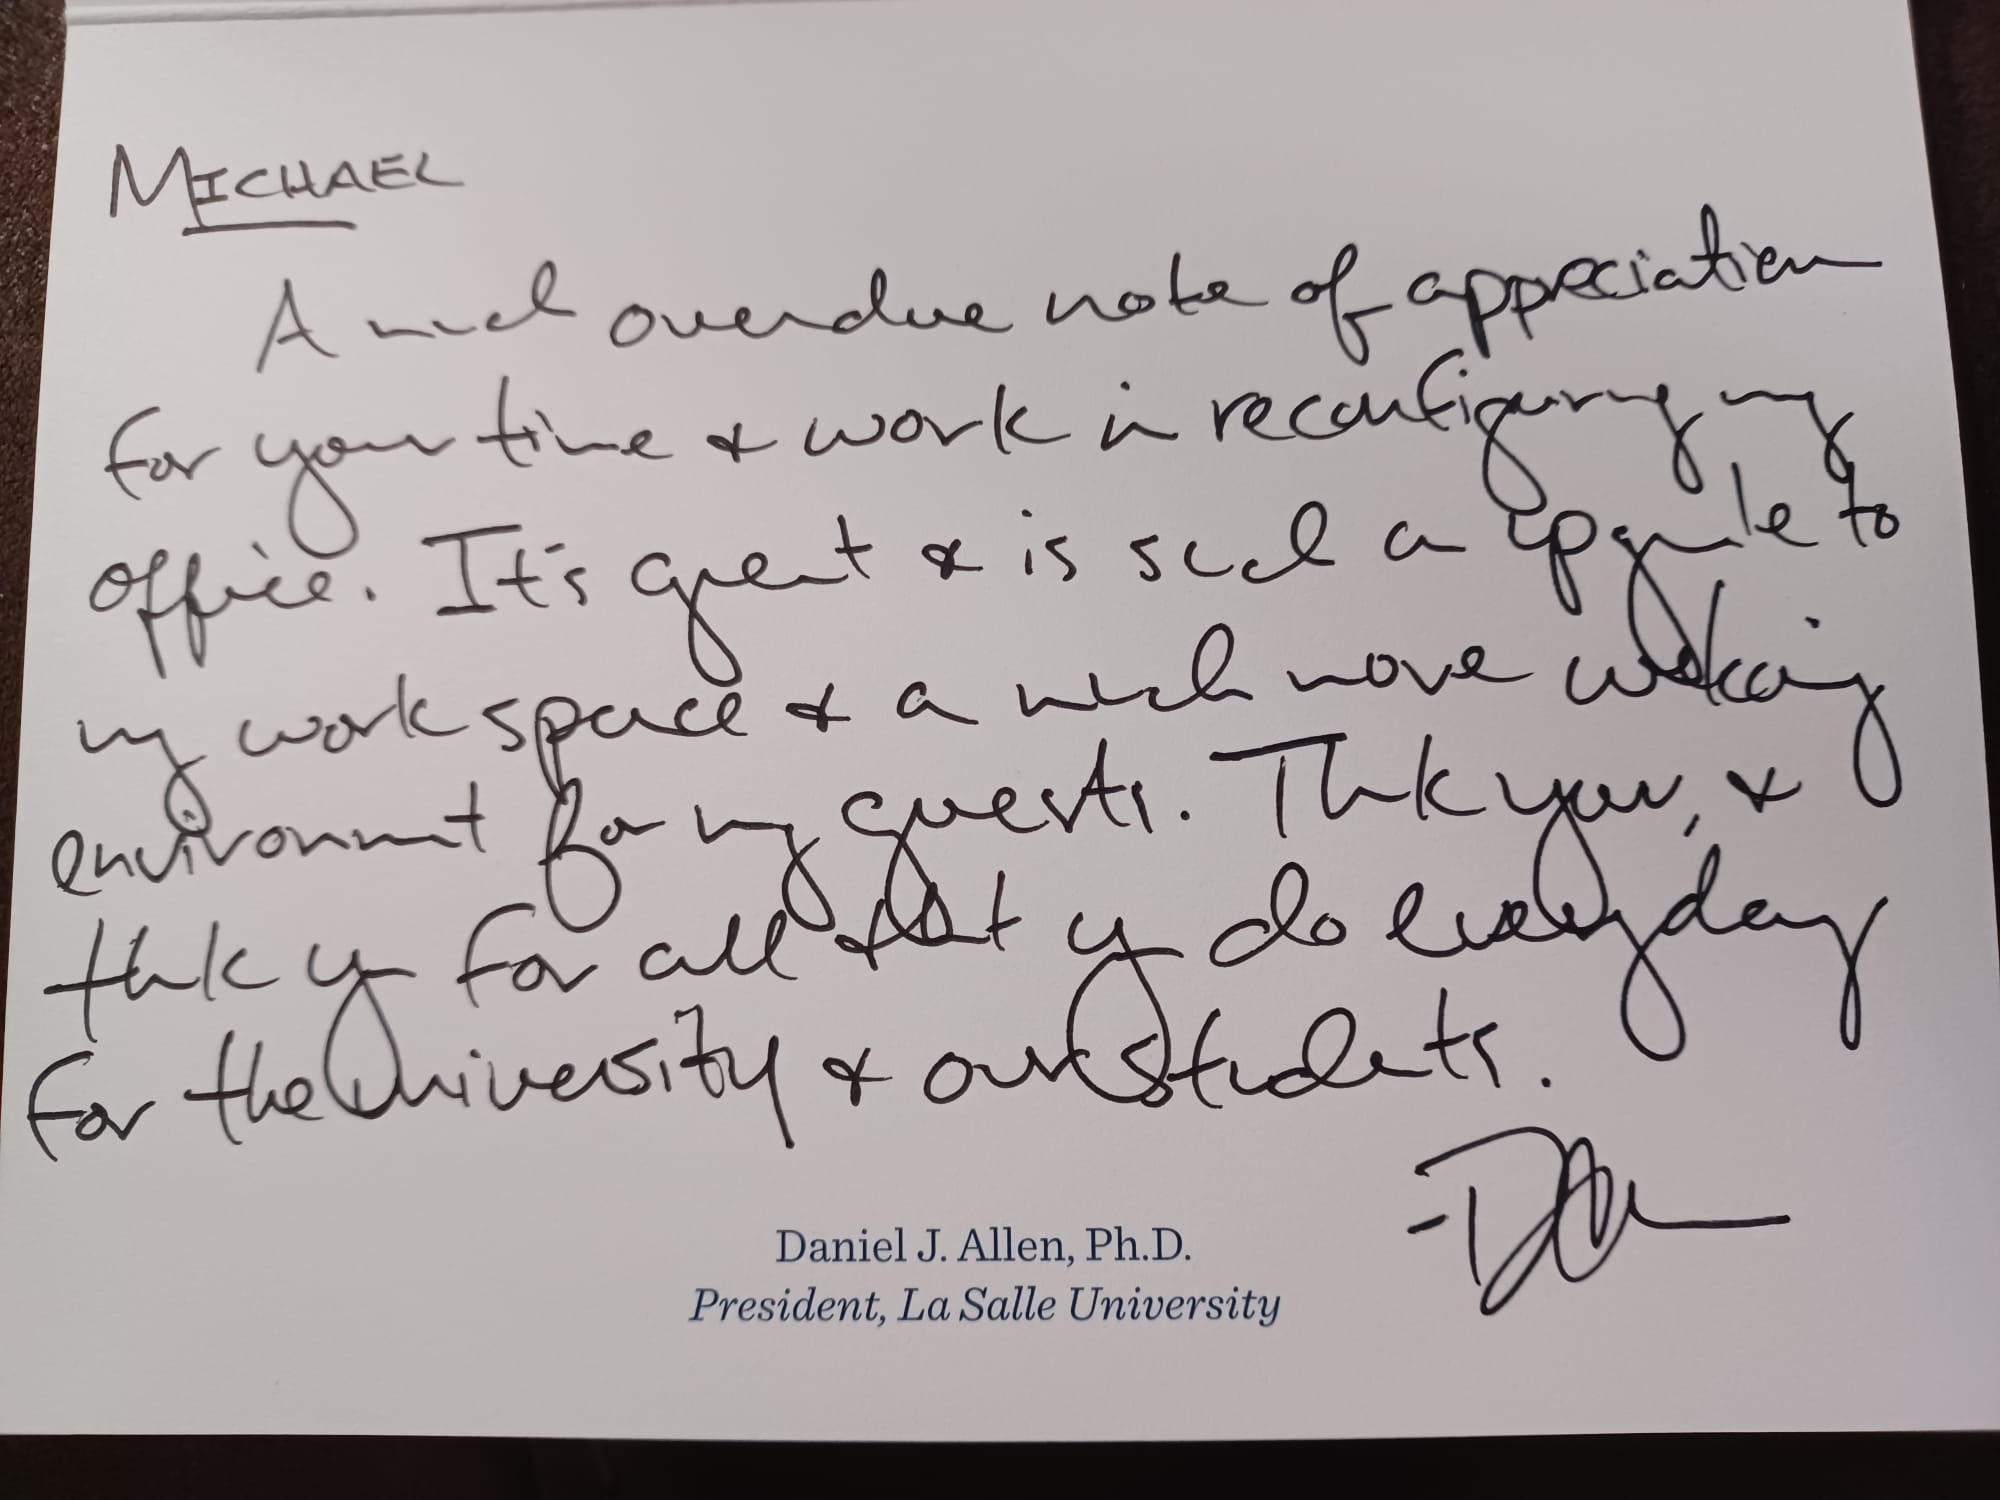 MICHAEL
A much overdue note of appreciation
for your time & work in reconfiguring my
office. It's great & is such a upgrade to
my work space & a much more welcoming
environment for my guests. Thank you, &
thank you for all that you do everyday
for the University & our students.
-Dan
Daniel J. Allen, Ph.D.
President, La Salle University